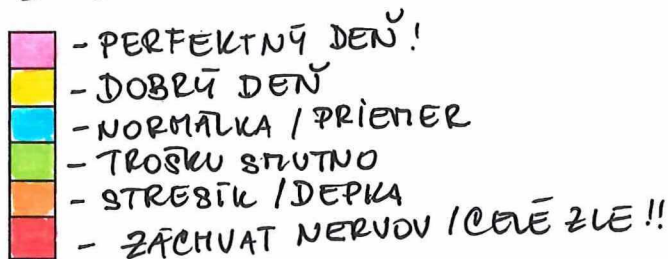 - PERFEKTNÝ DEŇ!
- DOBRÝ DEŇ
- NORMÁLKA / PRIEMER
- TROŠKU SMUTNO
- STRESÍK / DEPKA
- ZÁCHVAT NERVOV / CELÉ ZLE!!